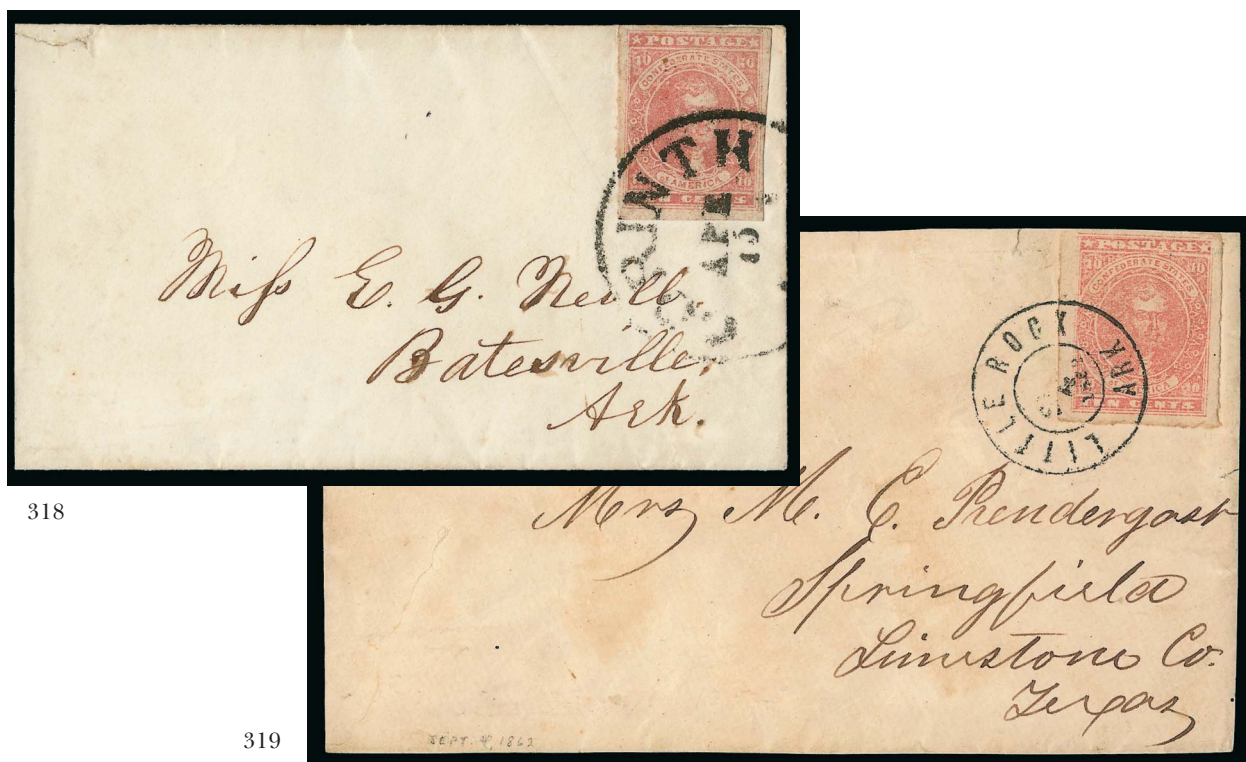 ★ POSTAGE ★
10 10
CONFEDERATE STATES
of AMERICA
10
CENTS
CORINTH
APR
Miss E. G. Neill.
Batesville,
Ark.
318
★ POSTAGE ★
10 10
CONFEDERATE STATES
AMERICA
10
N CENTS
LITTLE ROCK ARK
Mrs M. C. Prendergast
Springfield
Limestone Co.
Texas
SEPT. 4, 1862
319